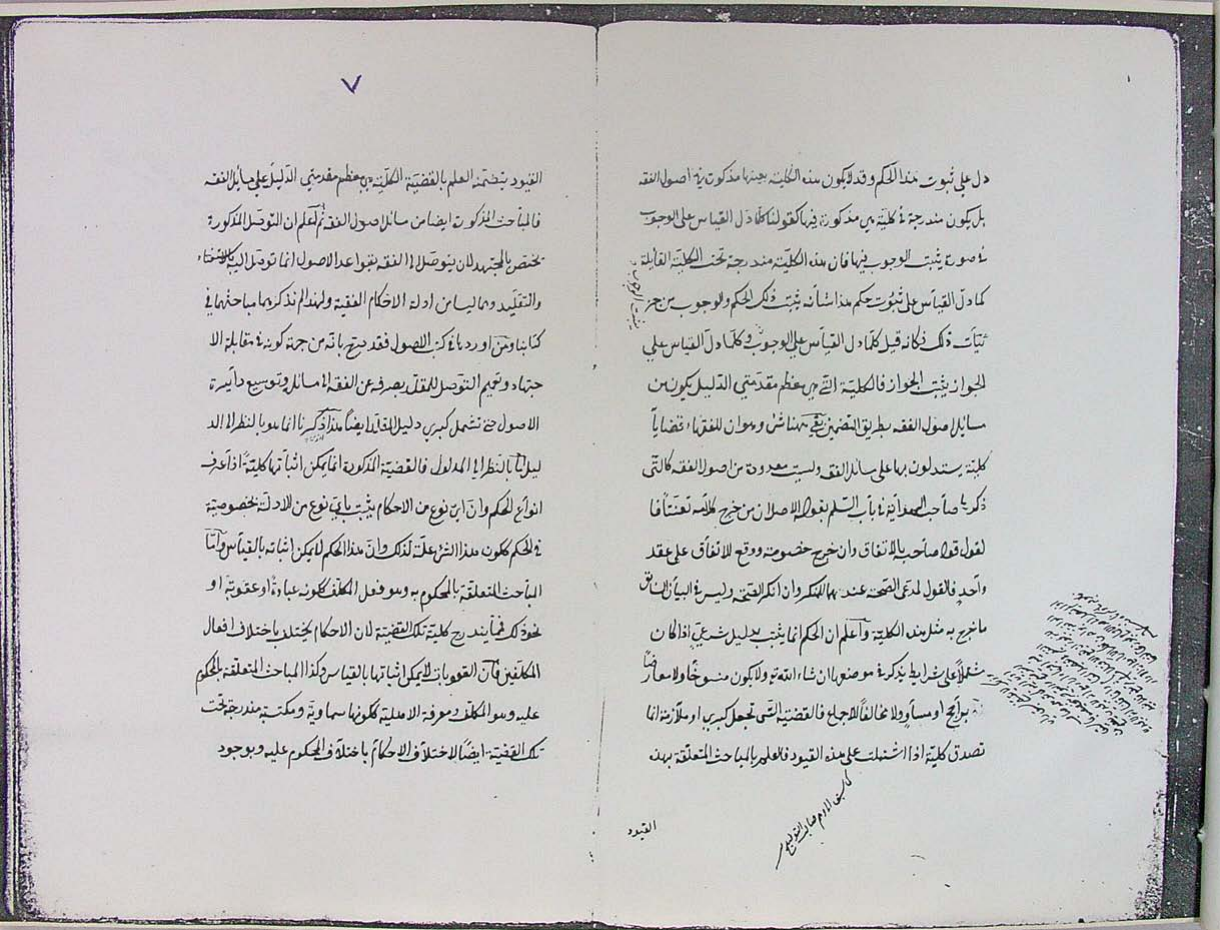 ٧
دل على ثبوت هذا الحكم وقد لا يكون هذه الكلية بعينها مذكورة في اصول الفقه
بل يكون مندرجة في كلية هي مذكورة فيها كقولنا كلما دل القياس على الوجوب
في صورة يثبت الوجوب فيها فان هذه الكلية مندرجة تحت الكلية القائلة
كما دل القياس على ثبوت حكم هذا شأنه يثبت ذلك الحكم والوجوب من جز
ئيات ذلك فكانه قيل كلما دل القياس على الوجوب وكلما دل القياس على
يثبت الوجوب
الجواز يثبت الجواز فالكلية التي هي عظم مقدمتي الدليل يكون من
مسائل اصول الفقه بطريق التضمن بقي ههنا شئ وهو ان للفقهاء قضايا
كلية يستدلون بها على مسائل الفقه وليست معدودة من اصول الفقه كالتي
ذكرها صاحب الهداية في باب السلم بقوله الاصل ان من خرج كلامه تعنتا فا
لقول قول صاحبه بالاتفاق وان خرج خصومة ووقع للاتفاق على عقد
واحد فالقول لمدعي الصحة عندهما للمنكر وان انكر الصحة وليس في البيان السابق
ما خرج به مثل هذه الكلية واعلم ان الحكم انما يثبت بدليل شرعي اذا كان
مشتملا على شرائط يذكر في موضعها ان شاء الله تع ولا يكون منسوخا ولا معارضا
براجح او مساو ولا مخالفا للاجماع فالقضية التي تجعل كبرى او ملازمة انما
تصدق كلية اذا اشتملت على هذه القيود فالعلم بالمباحث المتعلقة بهذه
القيود
القيود يتضمنه العلم بالقضية الكلية هي عظم مقدمتي الدليل على مسائل الفقه
فالمباحث المذكورة ايضا من مسائل اصول الفقه ثم اعلم ان التوصل المذكور
يختص بالمجتهد لان يتوصل الى الفقه بقواعد الاصول انما توصل اليه بالاستفتاء
والتقليد وهما ليسا من ادلة الاحكام الفقهية ولهذا لم نذكرها مباحثهما في
كتابنا ومن اوردها في كتب الاصول فقد صرح بانه من جهة كونه في مقابلة الا
جتهاد وتعميم التوصل للمقلد بصرفه عن الفقه الى مسائله وتوسيع دائرة
الاصول حتى تشمل كبرى دليل المقلد ايضا هذا ذكرنا انما هو بالنظر الى الد
ليل بالنظر الى المدلول فالقضية المذكورة انما يمكن اثباتها كلية اذا عرف
انواع الحكم وان اي نوع من الاحكام يثبت باي نوع من الادلة بخصوصية
في الحكم ككون هذا الشئ علة لذلك وان هذا الحكم لا يمكن اثباته بالقياس واما
المباحث المتعلقة بالمحكوم به وهو فعل المكلف ككونه عبادة او عقوبة او
نحو ذلك فمما يندرج كلية تلك القضية لان الاحكام يختلف باختلاف افعال
المكلفين فان العقوبات لا يمكن اثباتها بالقياس وكذا المباحث المتعلقة بالمحكوم
عليه وهو المكلف ومعرفة الاهلية ككونها سماوية ومكتسبة مندرجة تحت
تلك القضية ايضا لاختلاف الاحكام باختلاف المحكوم عليه وبوجود